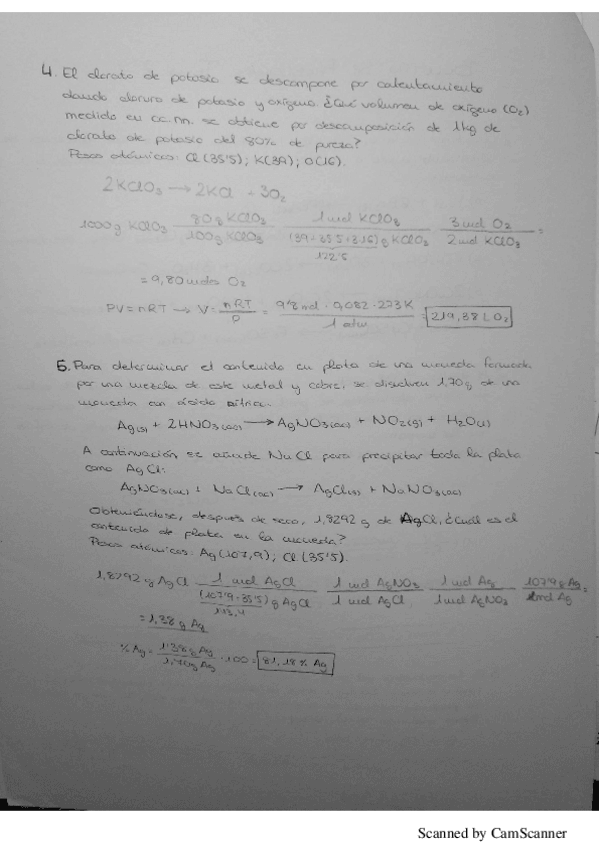 4. El clorato de potasio se descompone por calentamiento
dando cloruro de potasio y oxígeno. ¿Qué volumen de oxígeno (O₂)
medido en cc.nn. se obtiene por descomposición de 1kg de
clorato de potasio del 80% de pureza?
Pesos atómicos: Cl (35'5); K(39); O(16).
2KClO₃ → 2KCl + 3O₂
1000g KClO₃ 80g KClO₃ / 100g KClO₃ 1 mol KClO₃ / (39+35'5+3·16)g KClO₃ 3 mol O₂ / 2 mol KClO₃ =
122'5
= 9,80 moles O₂
PV = nRT → V = nRT / P = 9'8 mol · 0,082 · 273K / 1 atm = 219,38 L O₂
5. Para determinar el contenido en plata de una moneda formada
por una mezcla de este metal y cobre, se disuelven 1,70g de una
moneda con ácido nítrico.
Ag(s) + 2HNO₃(ac) → AgNO₃(ac) + NO₂(g) + H₂O(l)
A continuación se añade NaCl para precipitar toda la plata
como AgCl:
AgNO₃(ac) + NaCl(ac) → AgCl(s) + NaNO₃(ac)
Obteniéndose, después de seco, 1,8292 g de AgCl, ¿cuál es el
contenido de plata en la moneda?
Pesos atómicos: Ag(107,9); Cl(35'5).
1,8292 g AgCl 1 mol AgCl / (107'9+35'5) g AgCl 1 mol AgNO₃ / 1 mol AgCl 1 mol Ag / 1 mol AgNO₃ 107'9g Ag / 1 mol Ag =
143,4
= 1,38 g Ag
% Ag = 1'38g Ag / 1,70g Ag · 100 = 81,18 % Ag
Scanned by CamScanner